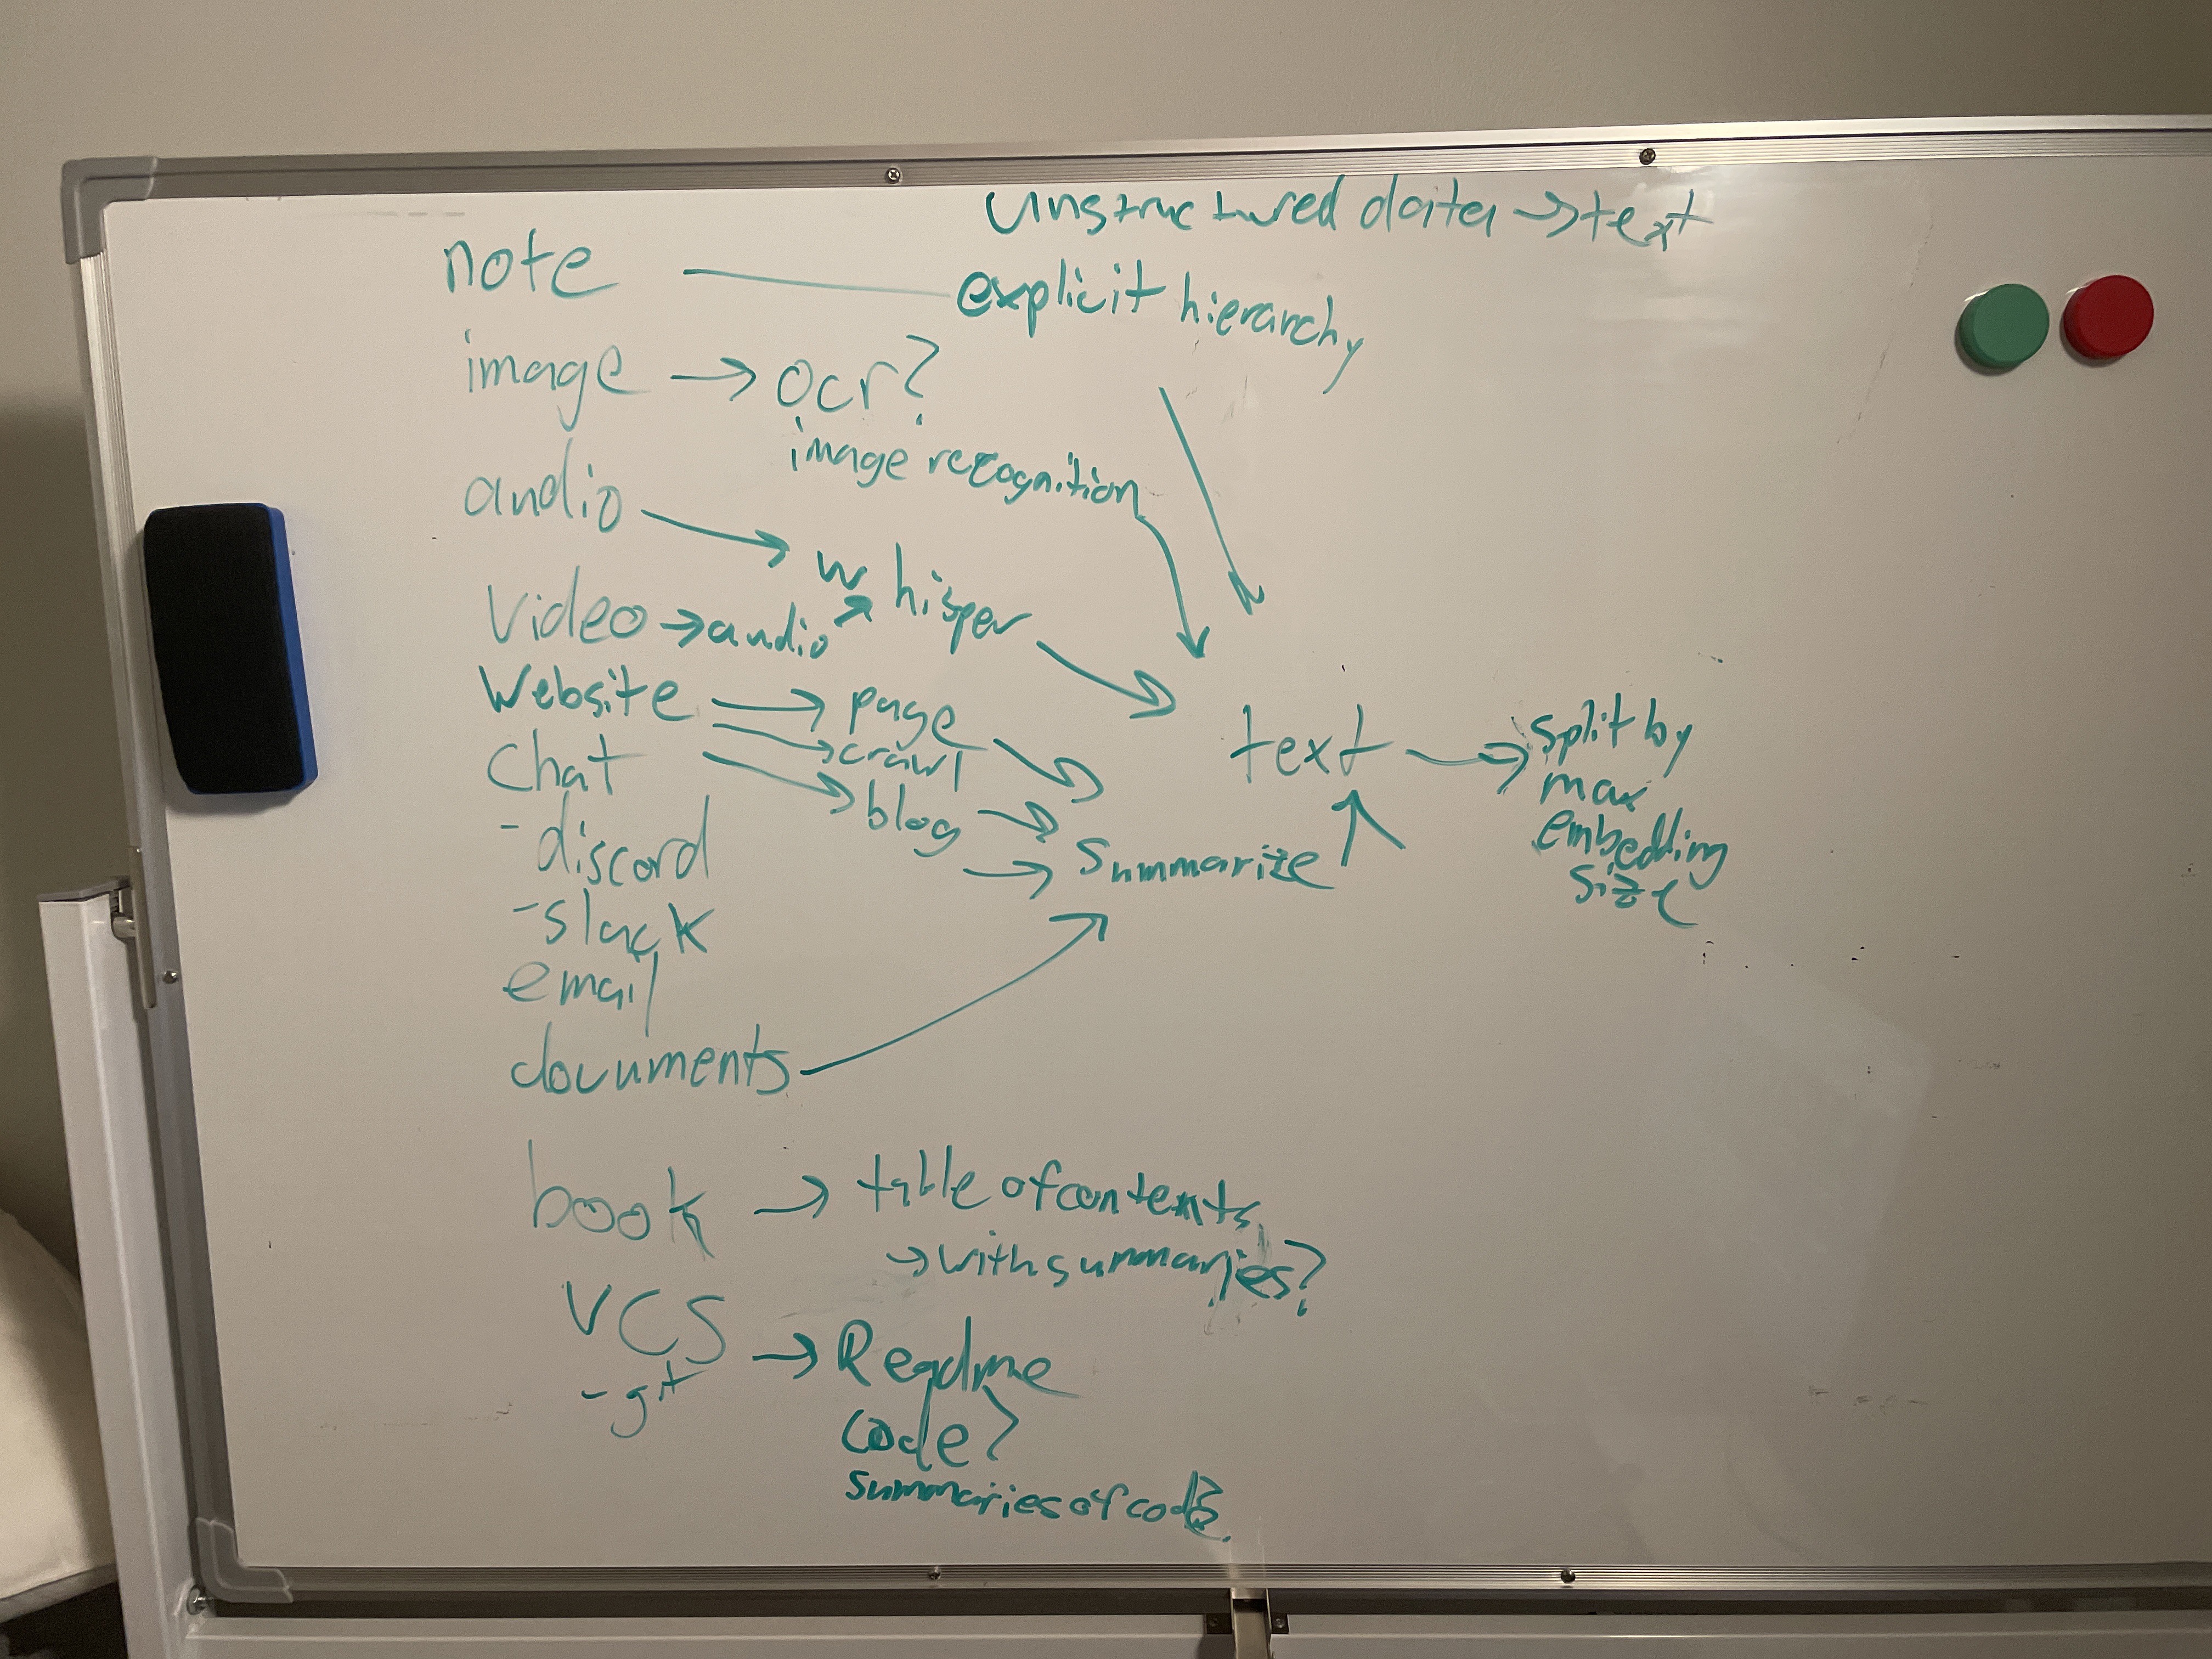 unstructured data → text
note — explicit hierarchy
image → ocr?
image recognition
audio → whisper
video → audio
Website → page
→ crawl
chat → blog
- discord
- slack
email
documents
Summarize
text → split by
max
embedding
size
book → table of contents
→ with summaries?
VCS → Readme
- git
code?
summaries of code?